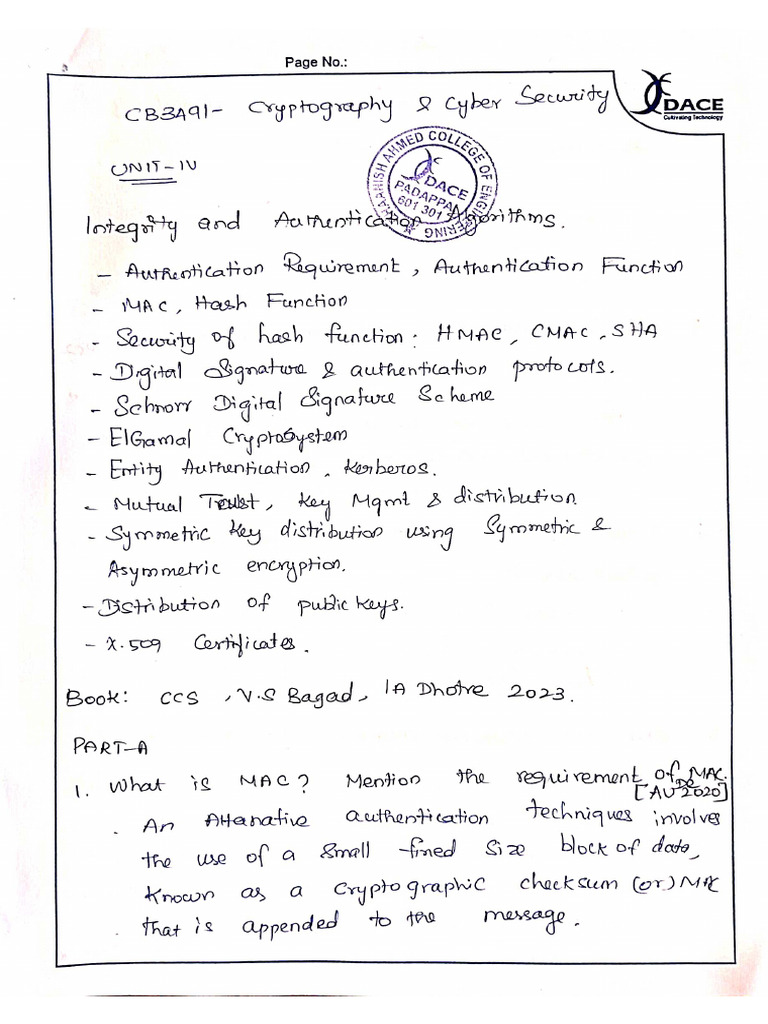 Page No.:
DACE
Cultivating Technology
CB3A91- Cryptography & Cyber Security
UNIT-IV
AHMED COLLEGE OF ENGINEERING
DACE
PADAPPAI
601 301
Integrity and Authentication Algorithms.
- Authentication Requirement, Authentication Function
- MAC, Hash Function
- Security of hash function: HMAC, CMAC, SHA
- Digital Signature & authentication protocols.
- Schnorr Digital Signature Scheme
- ElGamal CryptoSystem
- Entity Authentication, Kerberos.
- Mutual Trust, Key Mgmt & distribution.
- Symmetric Key distribution using Symmetric &
Asymmetric encryption.
- Distribution of public keys.
- X.509 Certificates.
Book: CCS, V.S Bagad, IA Dhotre 2023.
PART-A
1. What is MAC? Mention the requirement of MAC.
[AU De 2020]
. An Alternative authentication techniques involves
the use of a small fined size block of data,
known as a cryptographic checksum (or) MAC
. that is appended to the message.